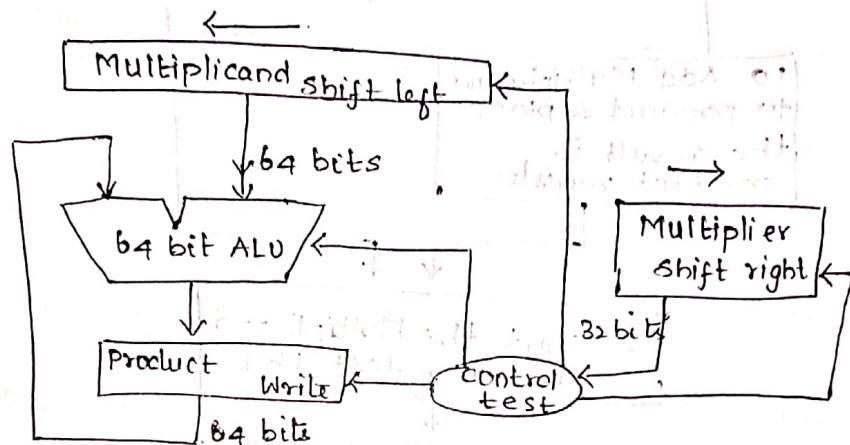 Multiplicand
shift left
64 bits
64 bit ALU
Multiplier
shift right
32 bits
Product
Write
control
test
64 bits